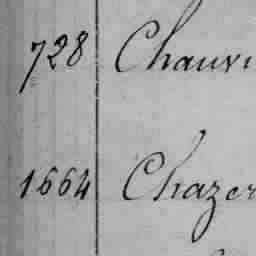 728 Chauvi
1664 Chazer